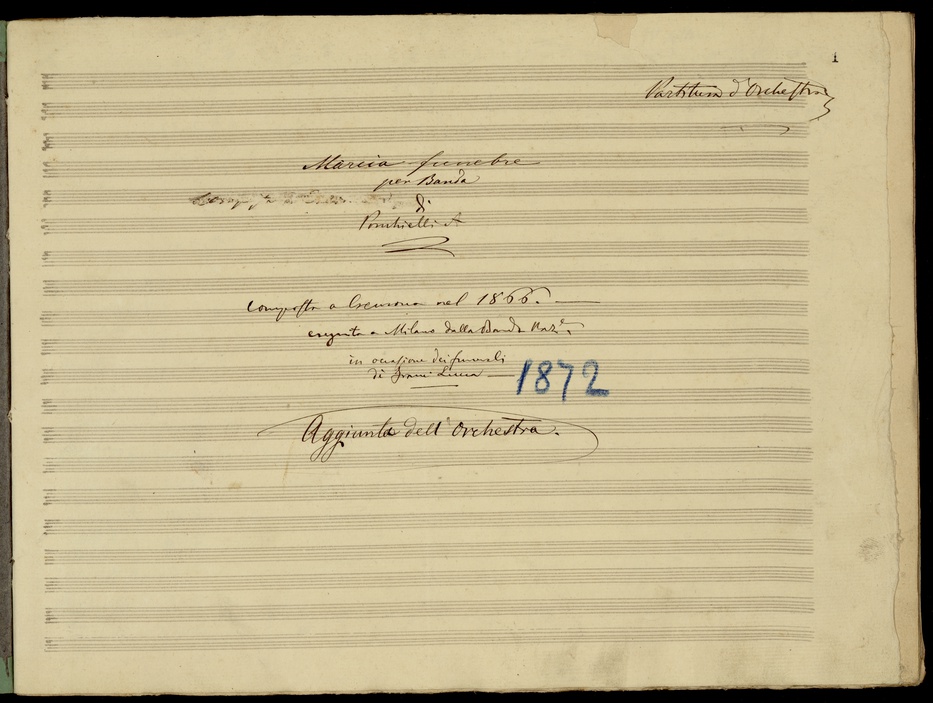 1
Partitura d'Orchestra
Marcia funebre
per Banda
di
Ponchielli A
composta a Cremona nel 1866.
eseguita a Milano dalla Banda Naz.e
in occasione dei funerali
di
1872
Aggiunta dell'Orchestra.